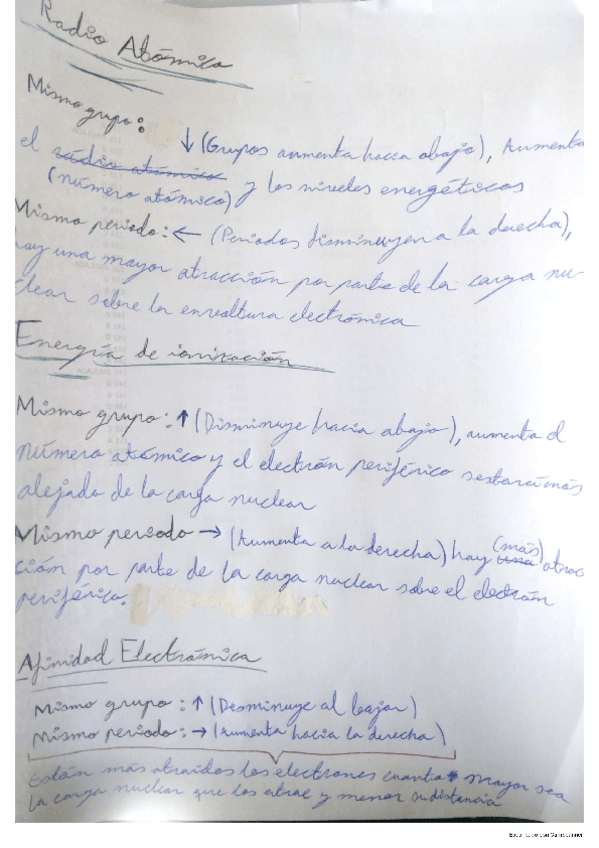 Radio Atómico
Mismo grupo:
↓ (Grupos aumenta hacia abajo), Aumenta
el radio atómico
(número atómico) y los niveles energéticos
Mismo periodo: ← (Periodos disminuyen a la derecha),
hay una mayor atracción por parte de la carga nu-
clear sobre la envoltura electrónica
Energía de ionización
Mismo grupo: ↑ (Disminuye hacia abajo), aumenta el
número atómico y el electrón periférico estará más
alejado de la carga nuclear
Mismo periodo → (Aumenta a la derecha) hay una (más) atrac
ción por parte de la carga nuclear sobre el electrón
periférico.
Afinidad Electrónica
Mismo grupo: ↑ (Desminuye al bajar)
Mismo periodo: → (Aumenta hacia la derecha)
Están más atraidos los electrones cuanto mayor sea
la carga nuclear que los atrae y menor su distancia